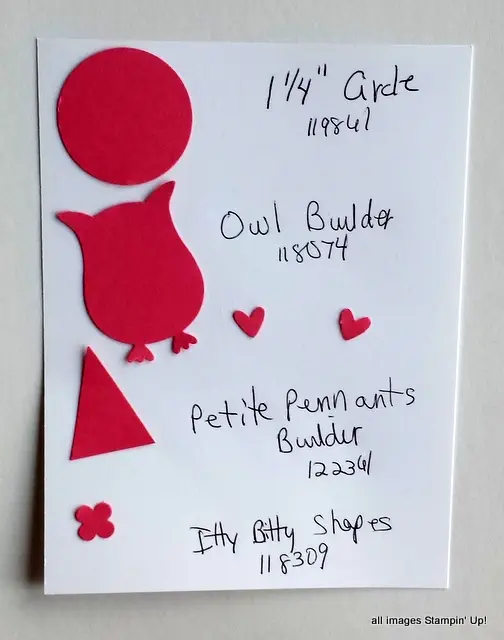 1 1/4" Circle
119861
Owl Builder
118074
Petite Pennants
Builder
122361
Itty Bitty Shapes
118309
all images Stampin' Up!